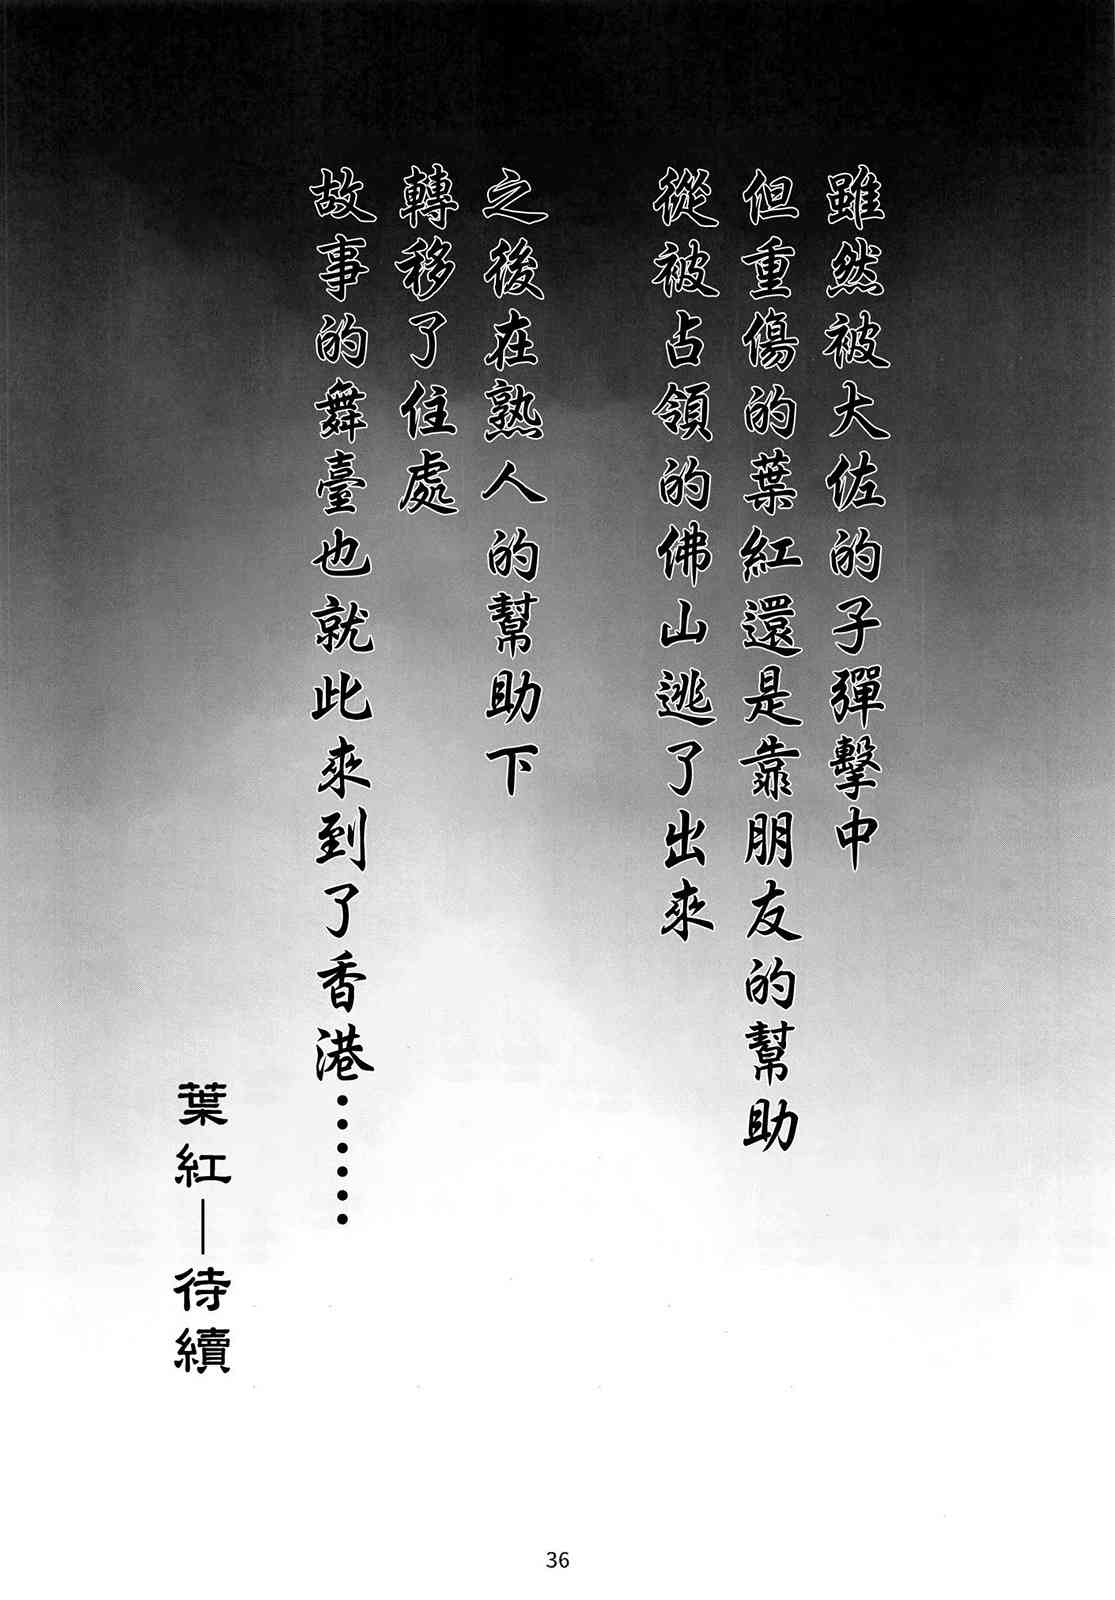 雖然被大佐的子彈擊中
但重傷的葉紅還是靠朋友的幫助
從被占領的佛山逃了出來
之後在熟人的幫助下
轉移了住處
故事的舞臺也就此來到了香港⋯⋯
葉紅—待續
36